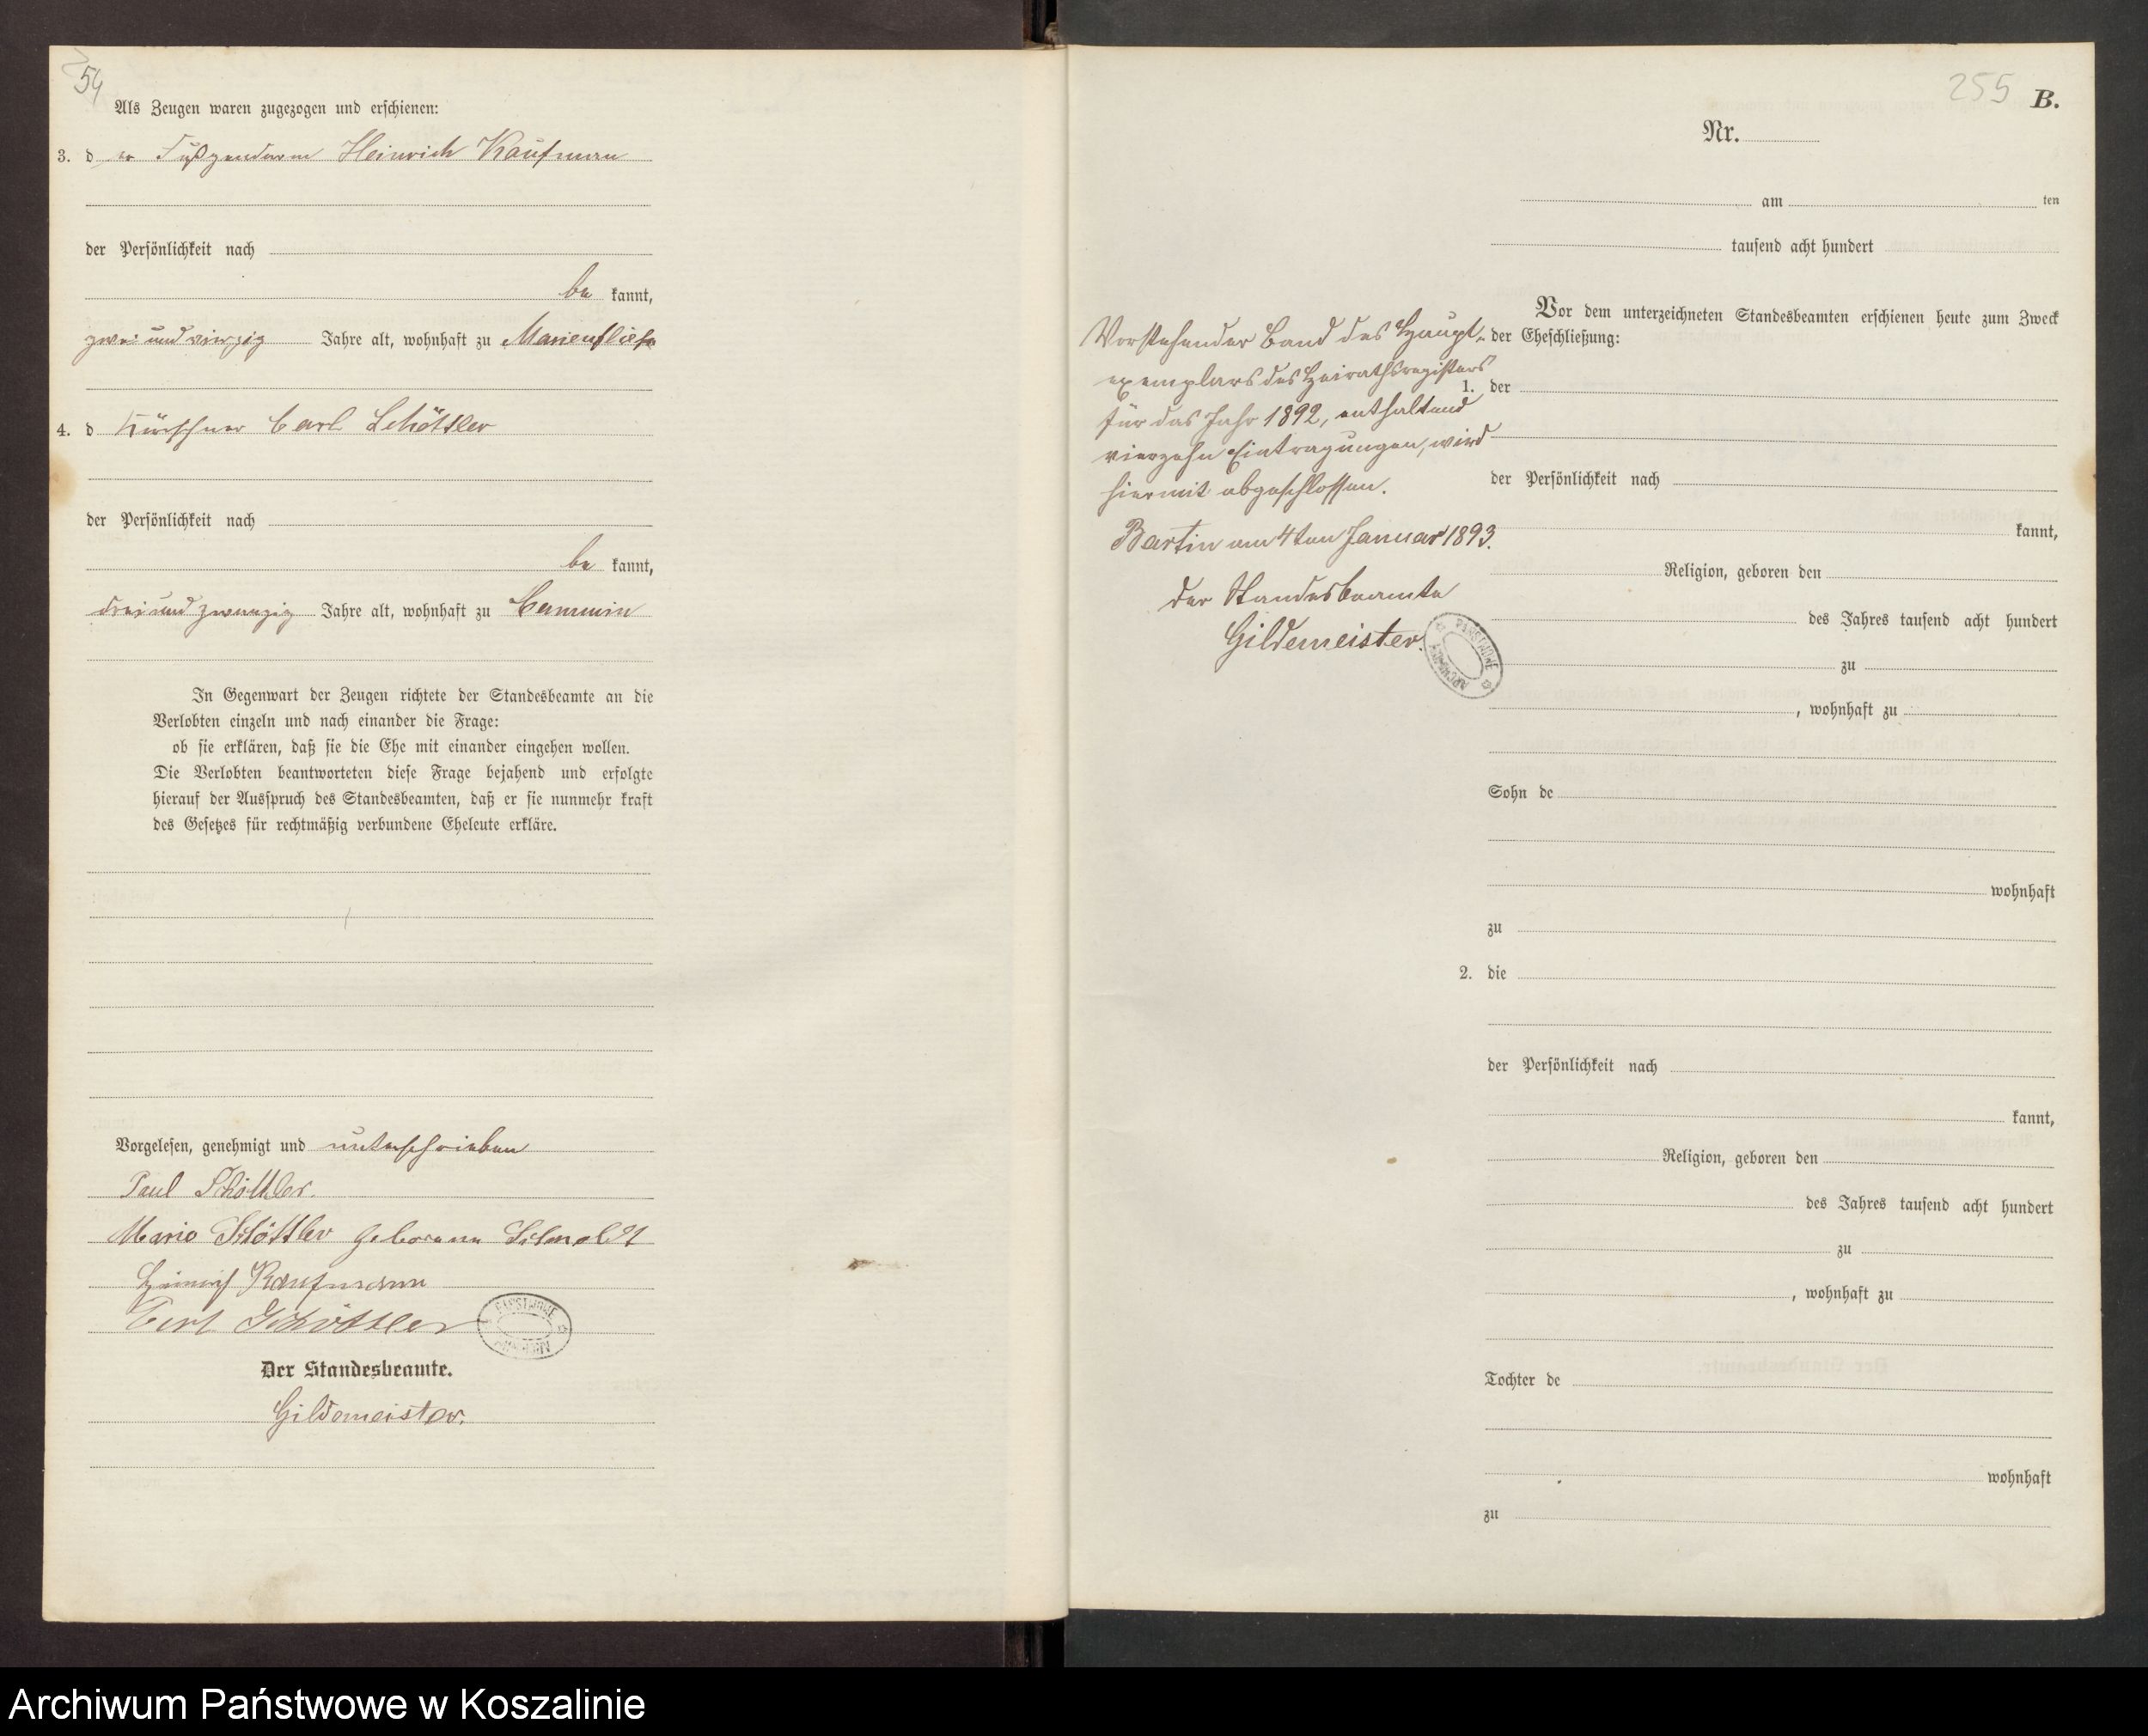 54
Als Zeugen waren zugezogen und erschienen:
3. d er Fußgendarm Heinrich Kaufmann
der Persönlichkeit nach
be kannt,
zwei und vierzig Jahre alt, wohnhaft zu Marienfließ
4. d Kürschner Carl Schöttler
der Persönlichkeit nach
be kannt,
drei und zwanzig Jahre alt, wohnhaft zu Cammin
In Gegenwart der Zeugen richtete der Standesbeamte an die
Verlobten einzeln und nach einander die Frage:
ob sie erklären, daß sie die Ehe mit einander eingehen wollen.
Die Verlobten beantworteten diese Frage bejahend und erfolgte
hierauf der Ausspruch des Standesbeamten, daß er sie nunmehr kraft
des Gesetzes für rechtmäßig verbundene Eheleute erkläre.
Vorgelesen, genehmigt und unterschrieben
Paul Schöttler.
Marie Schöttler geborene
Heinrich Kaufmann
Carl Schöttler
PAŃSTWOWE ARCHIWUM
Der Standesbeamte.
Gildemeister.
255 B.
Nr.
am ten
tausend acht hundert
Vor dem unterzeichneten Standesbeamten erschienen heute zum Zweck
der Eheschließung:
1. der
der Persönlichkeit nach
kannt,
Religion, geboren den
des Jahres tausend acht hundert
zu
, wohnhaft zu
Sohn de
wohnhaft
zu
2. die
der Persönlichkeit nach
kannt,
Religion, geboren den
des Jahres tausend acht hundert
zu
, wohnhaft zu
Tochter de
wohnhaft
zu
Vorstehender Band des Haupt-
exemplars des Heirathsregisters
für das Jahr 1892, enthaltend
vierzehn Eintragungen, wird
hiermit abgeschlossen.
Bartin am 4ten Januar 1893.
Der Standesbeamte
Gildemeister.
PAŃSTWOWE ARCHIWUM
Archiwum Państwowe w Koszalinie